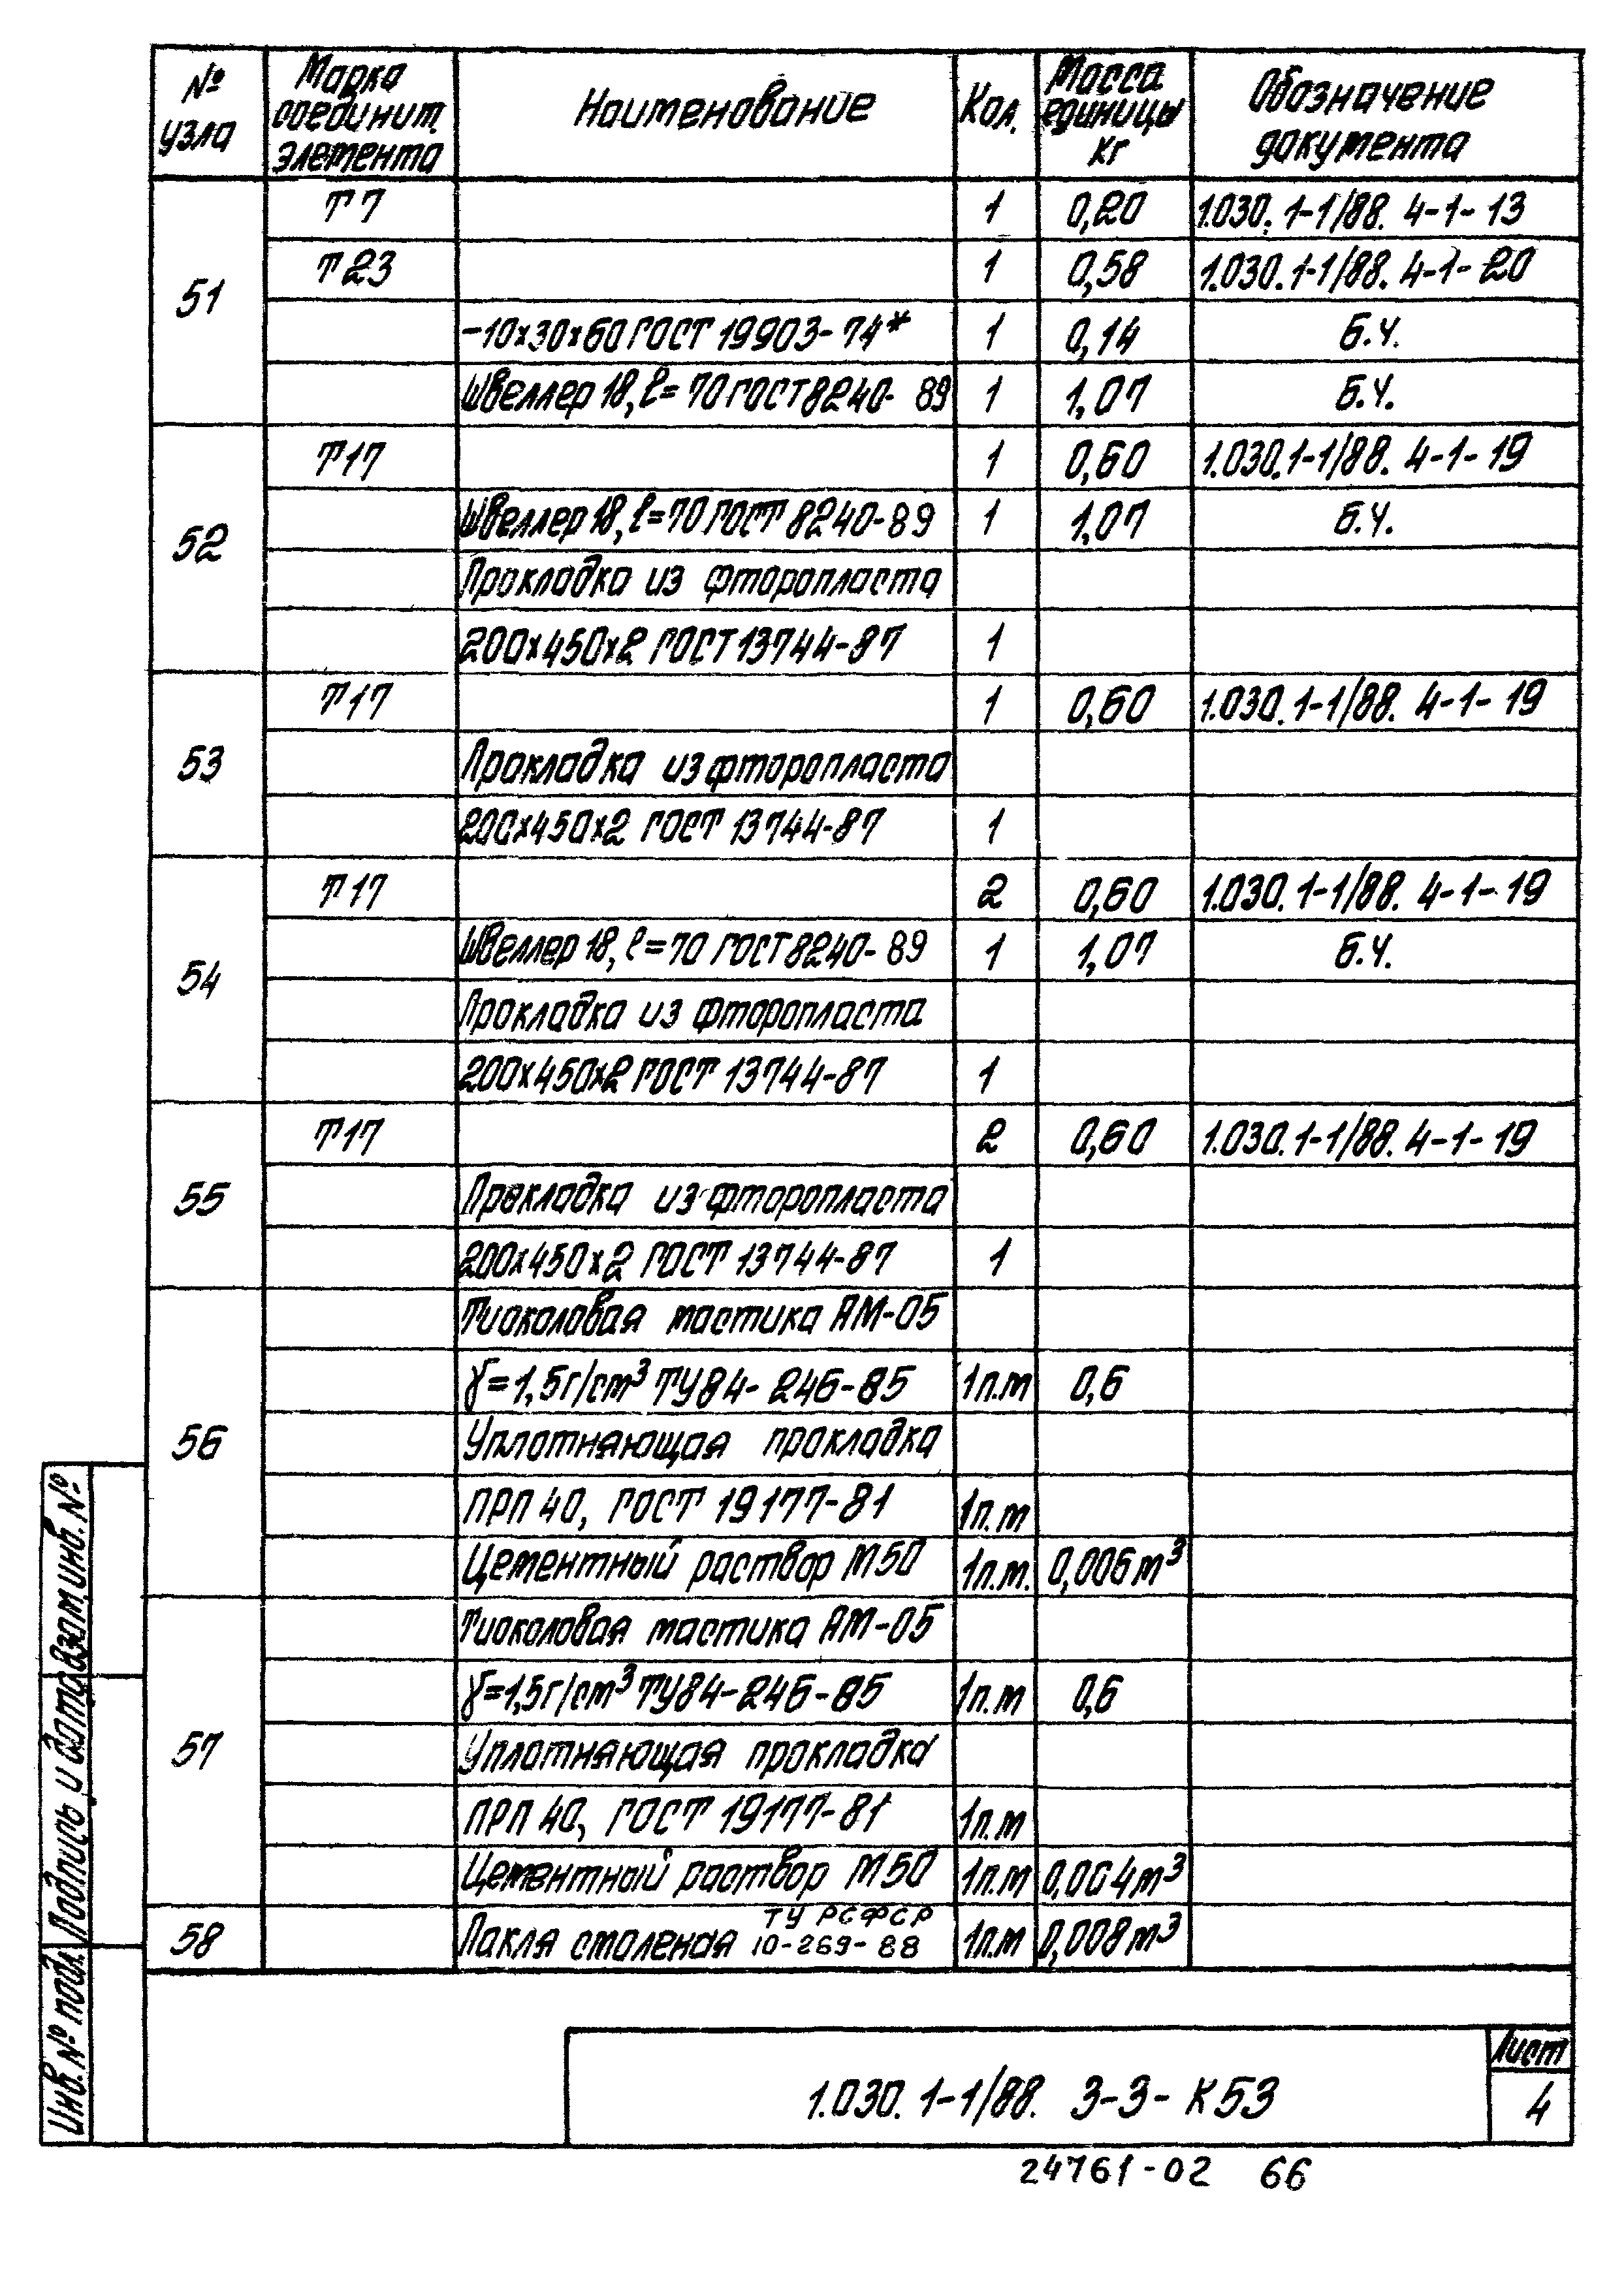 № узла Марка соединит. элемента Наименование Кол. Масса единицы кг Обозначение документа
51 Т7 1 0,20 1.030.1-1/88. 4-1-13
Т23 1 0,58 1.030.1-1/88. 4-1-20
-10х30х60 ГОСТ 19903-74* 1 0,14 Б.Ч.
Швеллер 18, ℓ=70 ГОСТ 8240-89 1 1,07 Б.Ч.
52 Т17 1 0,60 1.030.1-1/88. 4-1-19
Швеллер 18, ℓ=70 ГОСТ 8240-89 1 1,07 Б.Ч.
Прокладка из фторопласта
200х450х2 ГОСТ 13744-87 1
53 Т17 1 0,60 1.030.1-1/88. 4-1-19
Прокладка из фторопласта
200х450х2 ГОСТ 13744-87 1
54 Т17 2 0,60 1.030.1-1/88. 4-1-19
Швеллер 18, ℓ=70 ГОСТ 8240-89 1 1,07 Б.Ч.
Прокладка из фторопласта
200х450х2 ГОСТ 13744-87 1
55 Т17 2 0,60 1.030.1-1/88. 4-1-19
Прокладка из фторопласта
200х450х2 ГОСТ 13744-87 1
56 Тиоколовая мастика АМ-05
γ=1,5г/см³ ТУ84-246-85 1п.м 0,6
Уплотняющая прокладка
ПРП 40, ГОСТ 19177-81 1п.м
Цементный раствор М50 1п.м. 0,006м³
57 Тиоколовая мастика АМ-05
γ=1,5г/см³ ТУ84-246-85 1п.м 0,6
Уплотняющая прокладка
ПРП 40, ГОСТ 19177-81 1п.м
Цементный раствор М50 1п.м 0,004м³
58 Пакля смоленая ТУ РСФСР 10-269-88 1п.м 0,008м³
Взам.инв.№
Подпись и дата
Инв.№ подл.
1.030.1-1/88. 3-3-К53
Лист
4
24761-02 66